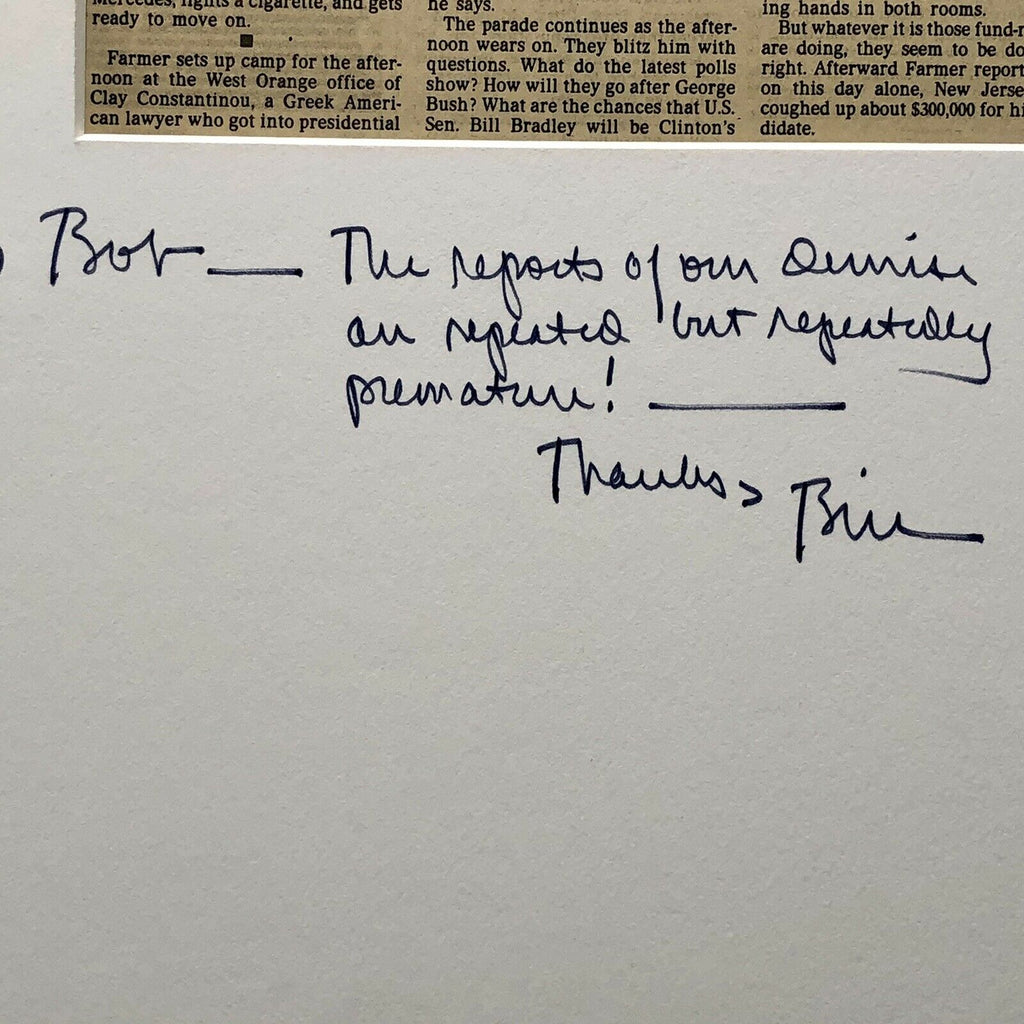 Mercedes, lights a cigarette, and gets
ready to move on.
Farmer sets up camp for the after-
noon at the West Orange office of
Clay Constantinou, a Greek Ameri-
can lawyer who got into presidential
he says.
The parade continues as the after-
noon wears on. They blitz him with
questions. What do the latest polls
show? How will they go after George
Bush? What are the chances that U.S.
Sen. Bill Bradley will be Clinton's
ing hands in both rooms.
But whatever it is those fund-r
are doing, they seem to be do
right. Afterward Farmer report
on this day alone, New Jerse
coughed up about $300,000 for hi
didate.
Bob — The reports of our demise
are repeated but repeatedly
premature! —
Thanks, Bill